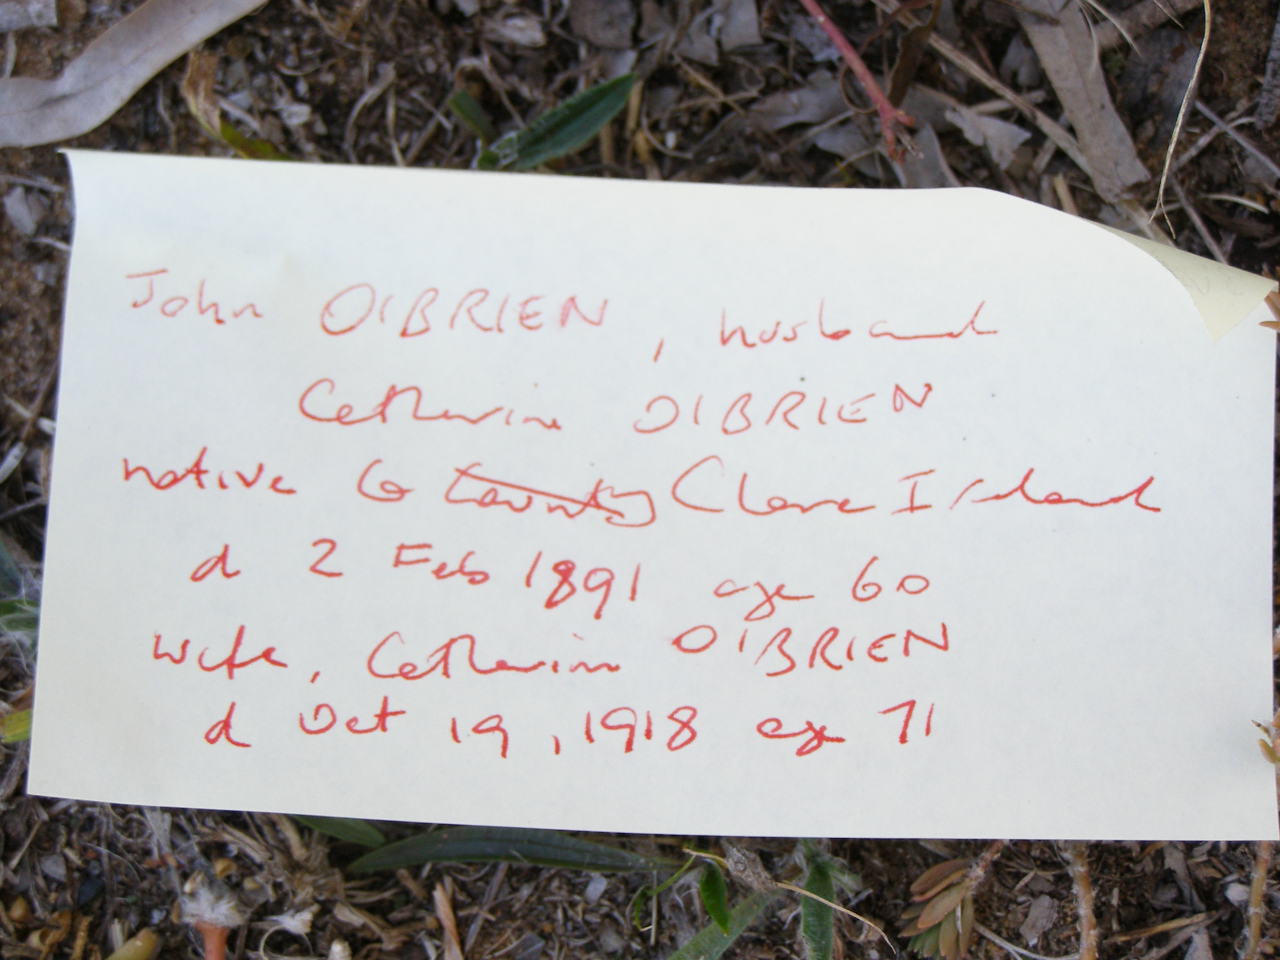 John O'BRIEN, husband
Catherine O'BRIEN
native Co County Clare Ireland
d 2 Feb 1891 age 60
wife, Catherine O'BRIEN
d Oct 19, 1918 age 71